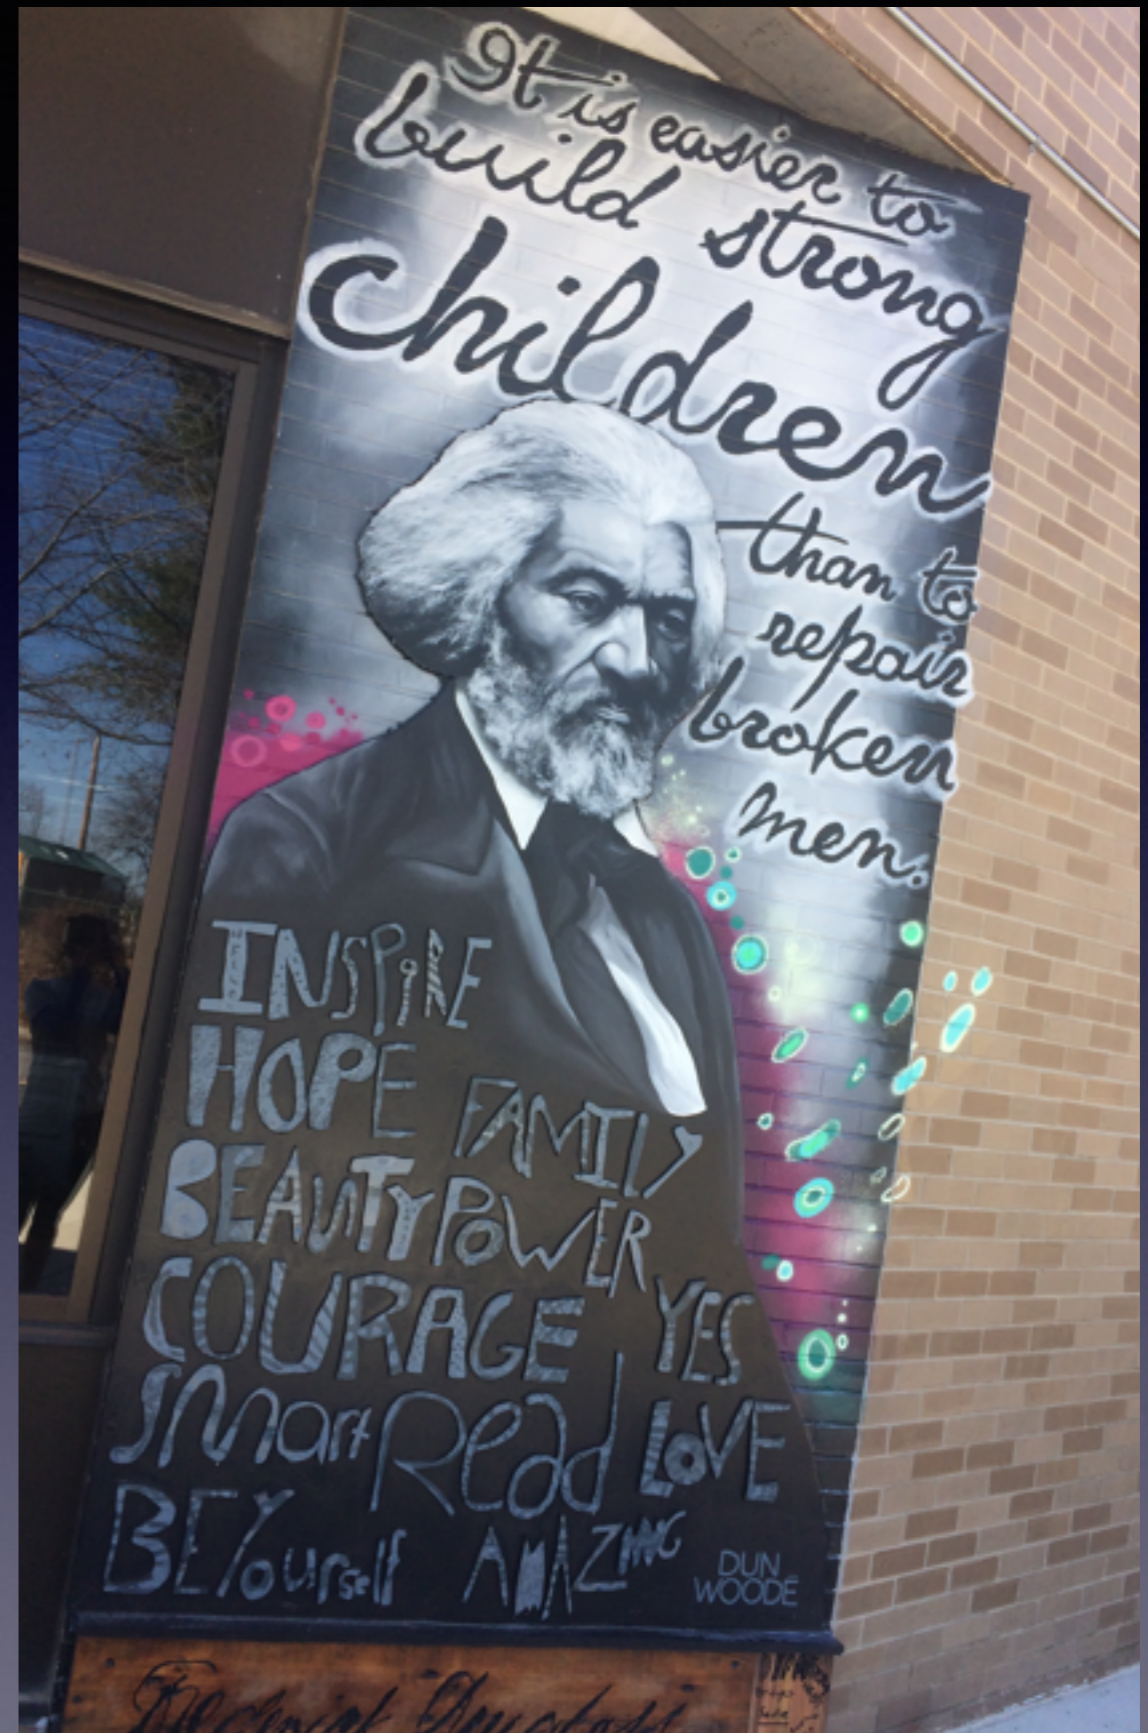 It is easier to
build strong
children
than to
repair
broken
men.
INSPIRE
HOPE FAMILY
BEAUTY POWER
COURAGE YES
SMart Read LOVE
BE Yourself AMAZING
DUN
WOODE
Frederick Douglass